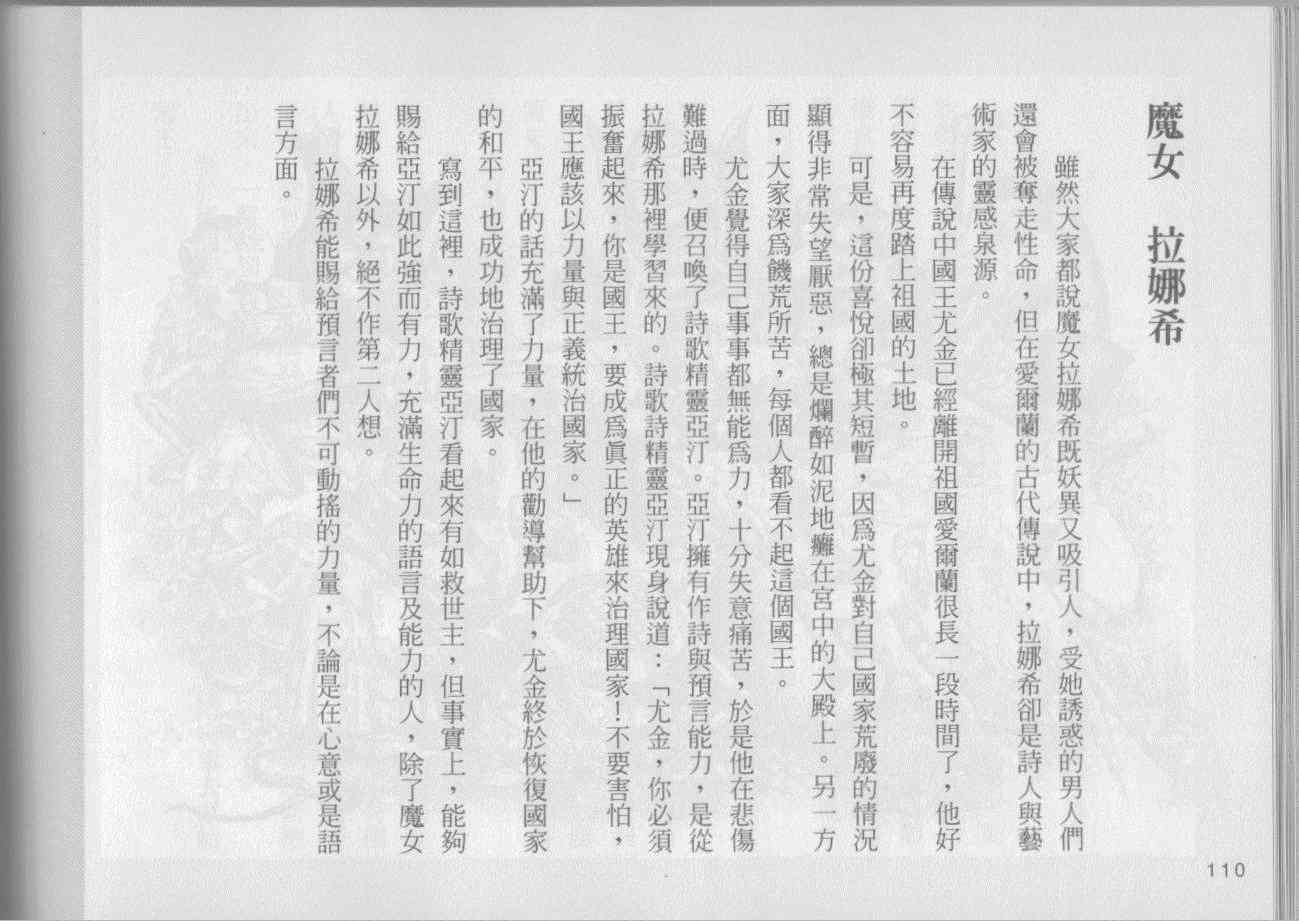 魔女　拉娜希
雖然大家都說魔女拉娜希既妖異又吸引人，受她誘惑的男人們
還會被奪走性命，但在愛爾蘭的古代傳說中，拉娜希卻是詩人與藝
術家的靈感泉源。
在傳說中國王尤金已經離開祖國愛爾蘭很長一段時間了，他好
不容易再度踏上祖國的土地。
可是，這份喜悅卻極其短暫，因爲尤金對自己國家荒廢的情況
顯得非常失望厭惡，總是爛醉如泥地癱在宮中的大殿上。另一方
面，大家深爲饑荒所苦，每個人都看不起這個國王。
尤金覺得自己事事都無能爲力，十分失意痛苦，於是他在悲傷
難過時，便召喚了詩歌精靈亞汀。亞汀擁有作詩與預言能力，是從
拉娜希那裡學習來的。詩歌詩精靈亞汀現身說道：「尤金，你必須
振奮起來，你是國王，要成爲眞正的英雄來治理國家！不要害怕，
國王應該以力量與正義統治國家。」
亞汀的話充滿了力量，在他的勸導幫助下，尤金終於恢復國家
的和平，也成功地治理了國家。
寫到這裡，詩歌精靈亞汀看起來有如救世主，但事實上，能夠
賜給亞汀如此強而有力，充滿生命力的語言及能力的人，除了魔女
拉娜希以外，絕不作第二人想。
拉娜希能賜給預言者們不可動搖的力量，不論是在心意或是語
言方面。
110